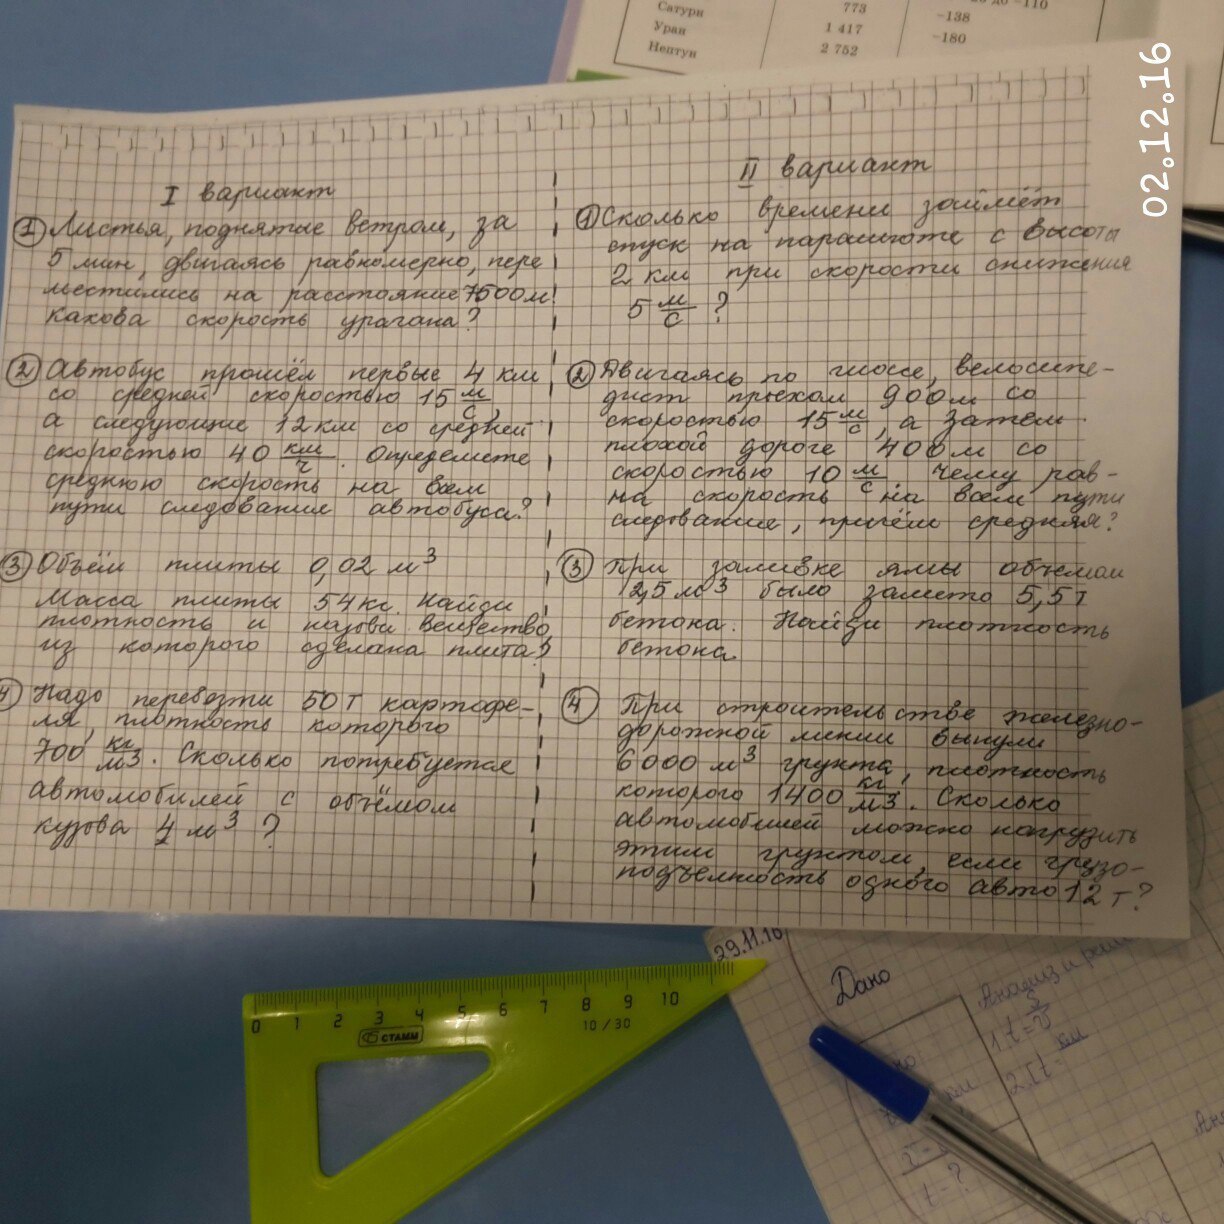 Сатурн 773 -138
Уран 1 417 -180
Нептун 2 752
02.12.16
I вариант
① Листья, поднятые ветром, за
5 мин, двигаясь равномерно, пере
местились на расстояние 7500 м.
Какова скорость урагана?
② Автобус прошёл первые 4 км
со средней скоростью 15 м/с,
а следующие 12 км со средней
скоростью 40 км/ч. Определите
среднюю скорость на всём
пути следования автобуса?
③ Объём плиты 0,02 м³
Масса плиты 54 кг. Найди
плотность и назови вещество
из которого сделана плита?
4 Надо перевезти 50 т картофе-
ля, плотность которого
700 кг/м3. Сколько потребуется
автомобилей с объёмом
кузова 4 м³ ?
II вариант
① Сколько времени займёт
спуск на парашюте с высоты
2 км при скорости снижения
5 м/с ?
② Двигаясь по шоссе, велосипе-
дист проехал 900 м со
скоростью 15 м/с, а затем
плохой дороге 400 м со
скоростью 10 м/с. Чему рав-
на скорость на всём пути
следования, причём средняя?
③ При заливке ямы объемом
2,5 м³ было залито 5,5 т
бетона. Найди плотность
бетона.
④ При строительстве железно-
дорожной линии вынули
6000 м³ грунта, плотность
которого 1400 кг/м3. Сколько
автомобилей можно нагрузить
этим грунтом, если грузо-
подъемность одного авто 12 т?
0 1 2 3 4 5 6 7 8 9 10
СТАММ
10 / 30
29.11.16
Дано
Анализ и реш
1. t = S/v
2. [t =
t = ?